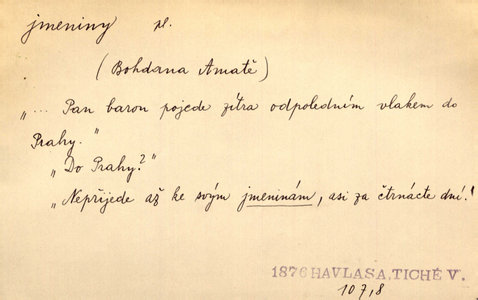 jmeniny pl.
(Bohdana Amatě)
„... Pan baron pojede zítra odpoledním vlakem do
Prahy."
„Do Prahy?"
„Nepřijede až ke svým jmeninám, asi za čtrnácte dní!
1876 HAVLASA, TICHÉ V.
107,8